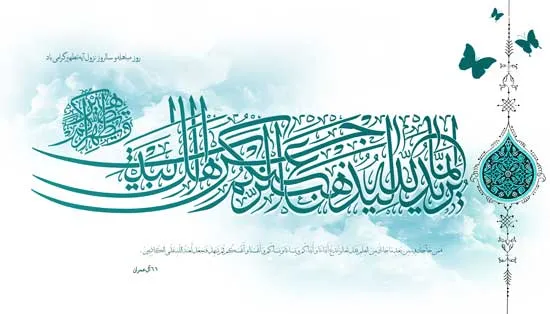 روز مباهله و سالروز نزول آیه تطهیر گرامی باد
إنما يريد الله ليذهب عنكم الرجس أهل البيت
ويطهركم تطهيرا
فمن حاجك فيه من بعد ما جاءك من العلم فقل تعالوا ندع أبناءنا و أبناءكم و نساءنا و نساءكم و أنفسنا و أنفسكم ثم نبتهل فنجعل لعنة الله على الكاذبين.
آل عمران